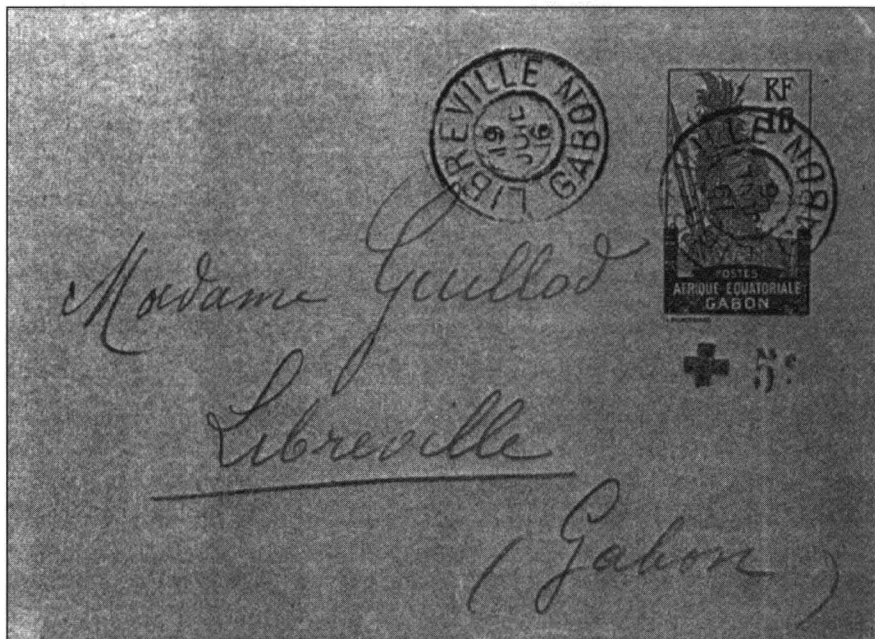 LIBREVILLE
GABON
19
JUIL
16
RF
10
POSTES
AFRIQUE EQUATORIALE
GABON
+ 5c
Madame Guillod
Libreville
(Gabon